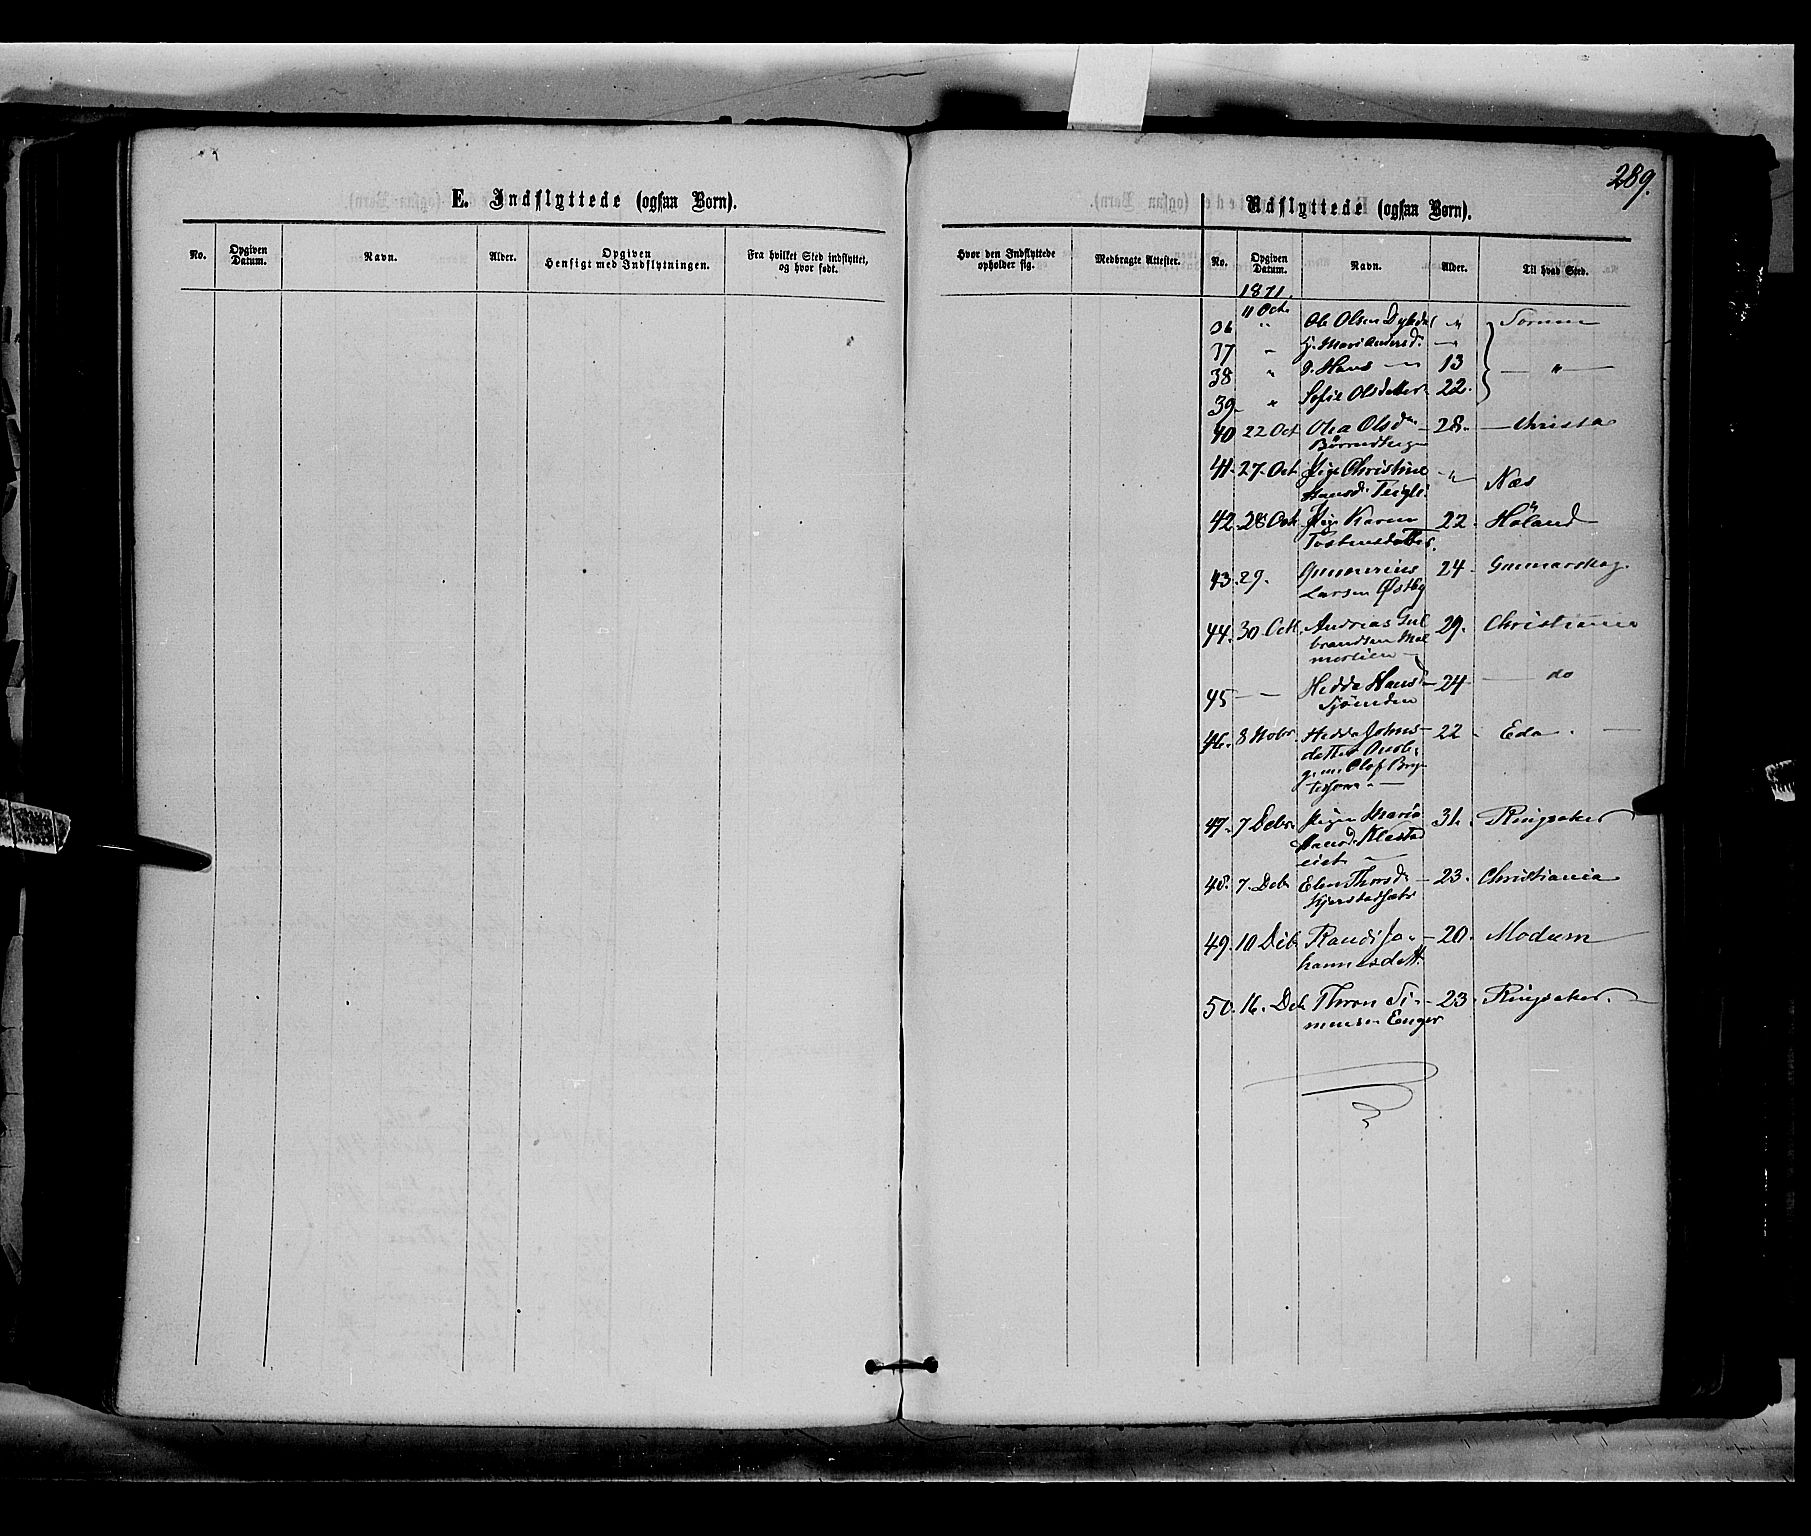 289.
E. Indflyttede (ogsaa Børn).
Udflyttede (ogsaa Børn).
No. Opgiven Datum. Navn. Alder. Opgiven Hensigt med Indflytningen. Fra hvilket Sted indflyttet, og hvor født. Hvor den Indflyttede opholder sig. Medbragte Attester. No. Opgiven Datum. Navn. Alder. Til hvad Sted.
1871.
11 Oct
36 " Ole Olsen "
37 " H. Mari Andersd.
38 " S. Hans 13 — " —
39. " Sofie Olsdatter 22.
40 22 Oct Olea Olsdr 28. Christa
41. 27. Oct Pige Christine " Næs
Hansd. Teigli
42. 28 Oct Pige Karen 22. Höland
Tostensdatter.
43. 29. Gunnerius 24. Gunnarskog.
Larsen Østby
44. 30 Oct. Andreas Gul 29. Christiania
brandsen Mal
merlien
45 — — Hedda Hansd. 24 do
46. 8 Nobr. Hedda Johns 22 Eda.
datter
g. m. Olof
47. 7 Debr. Pigen Maria 31. Ringsaker
Hansd. Klestad
eiet
48. 7. Deb. Elen Thorsd. 23. Christiania
49. 10 Deb. Randi Jo 20. Modum
hannesdatt.
50. 16. Deb. Thron Si 23. Ringsaker.
mensen Enger